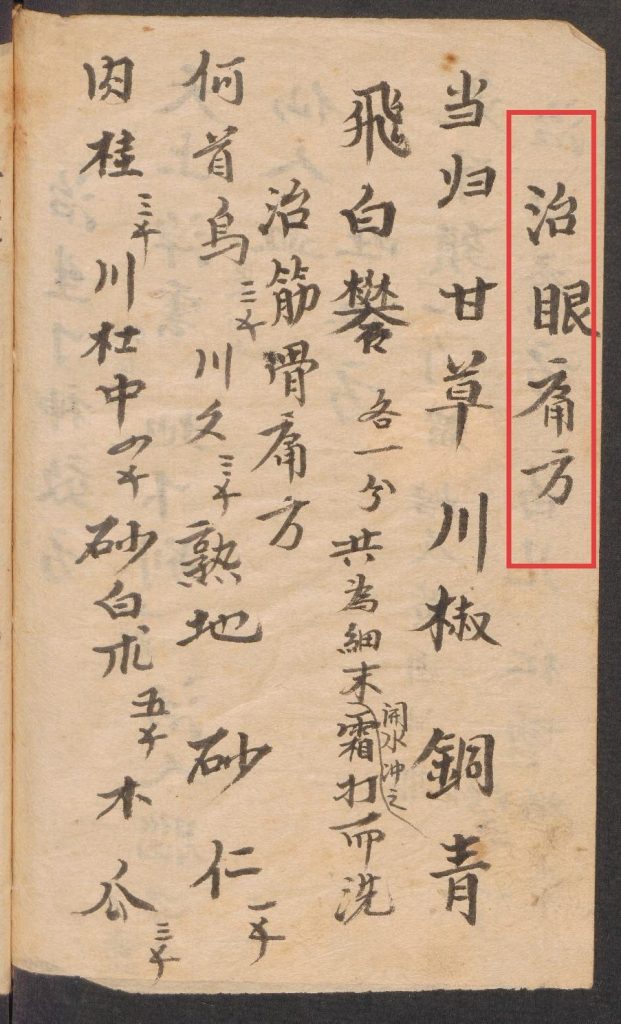 治眼痛方
当归 甘草 川椒 銅青
飛白礬 各一分 共為細末霜打而洗
開水冲之
治筋骨痛方
何首烏三个 川文三个 熟地 砂仁一个
肉桂三个 川杜中四个 砂白朮五个 木瓜三个